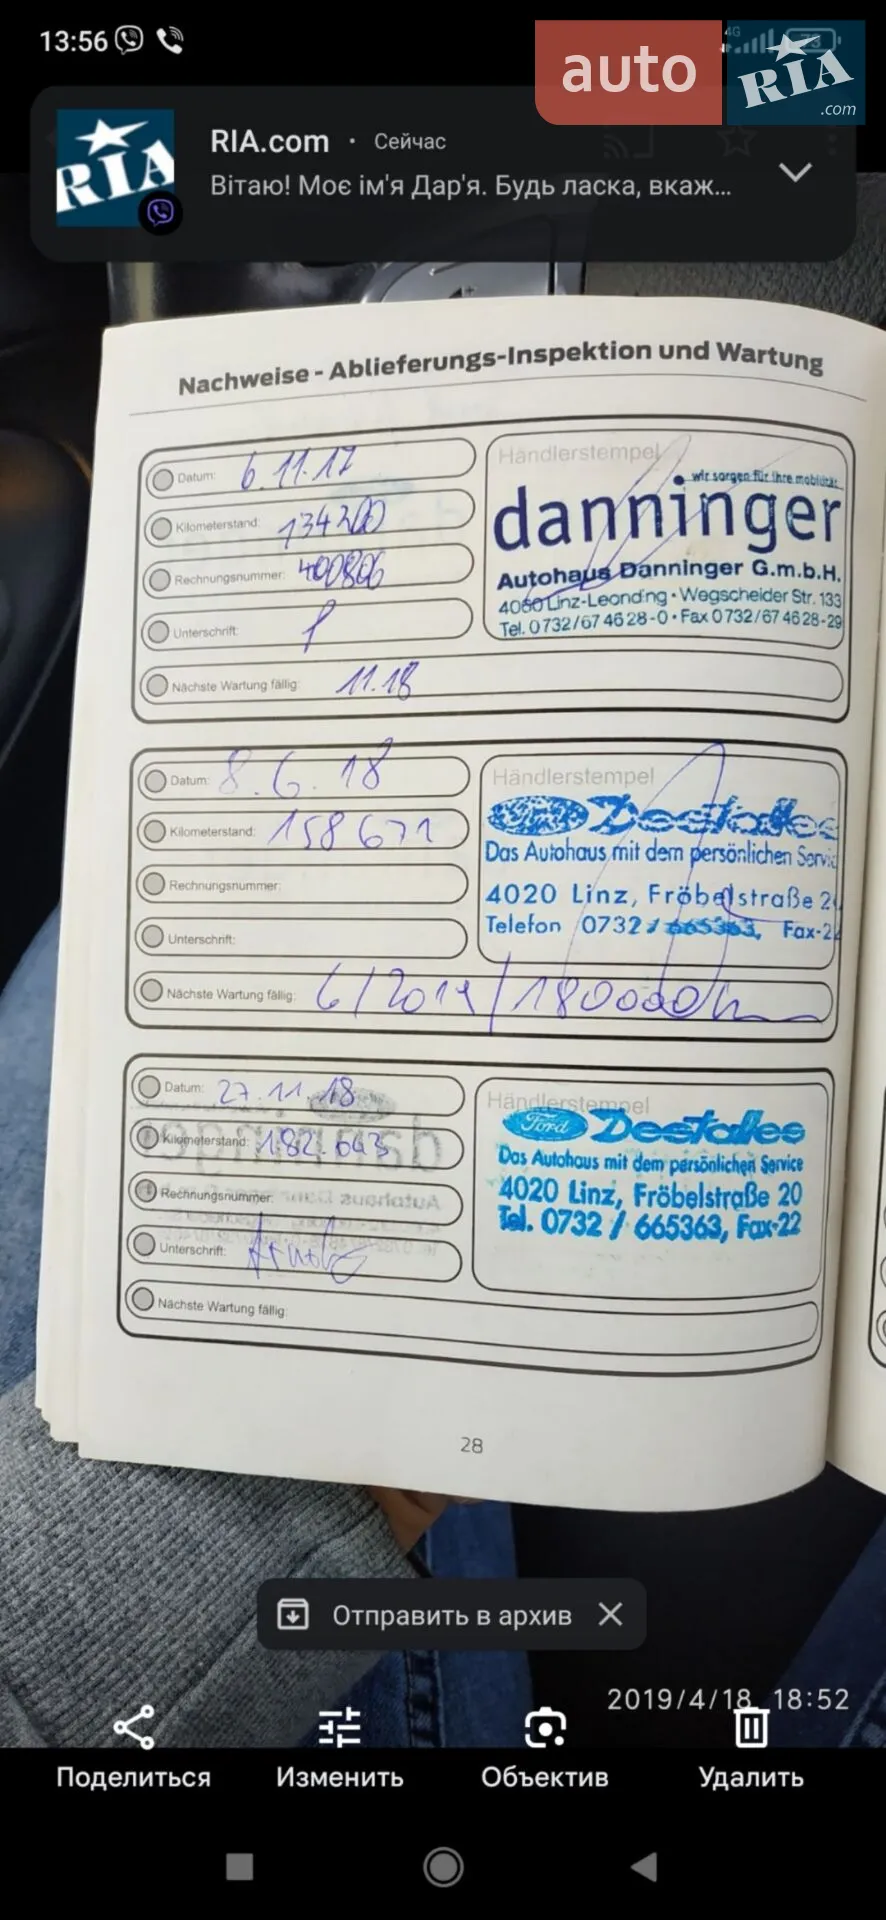 13:56
4G
73
auto
RIA
.com
RIA
RIA.com • Сейчас
Вітаю! Моє ім'я Дар'я. Будь ласка, вкаж...
Nachweise - Ablieferungs-Inspektion und Wartung
Datum: 6.11.17
Kilometerstand: 134200
Rechnungsnummer: 400806
Unterschrift:
Nächste Wartung fällig: 11.18
Händlerstempel
wir sorgen für ihre mobilität
danninger
Autohaus Danninger G.m.b.H.
4060 Linz-Leonding • Wegscheider Str. 133
Tel. 0732/67 46 28-0 • Fax 0732/67 46 28-29
Datum: 8.6.18
Kilometerstand: 158671
Rechnungsnummer:
Unterschrift:
Nächste Wartung fällig: 6/2019/180000
Händlerstempel
Destalles
Das Autohaus mit dem persönlichen Servic
4020 Linz, Fröbelstraße 2
Telefon 0732 / 665363, Fax-2
Datum: 27.11.18
Kilometerstand: 182.643
Rechnungsnummer:
Unterschrift:
Nächste Wartung fällig:
Händlerstempel
Ford Destalles
Das Autohaus mit dem persönlichen Service
4020 Linz, Fröbelstraße 20
Tel. 0732 / 665363, Fax-22
28
Отправить в архив
2019/4/18 18:52
Поделиться
Изменить
Объектив
Удалить